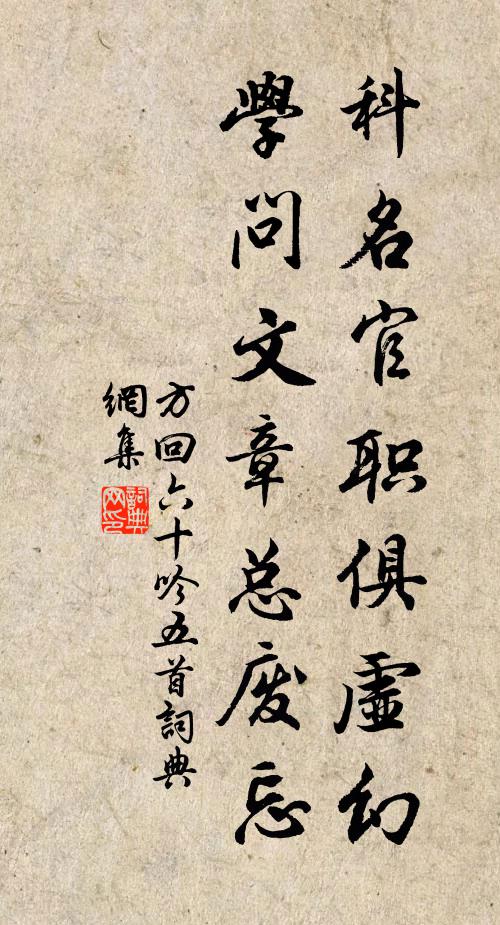 科名官职俱虛幻
學问文章总廢忘
方回六十吟五首詞典
網集
詞典
网印